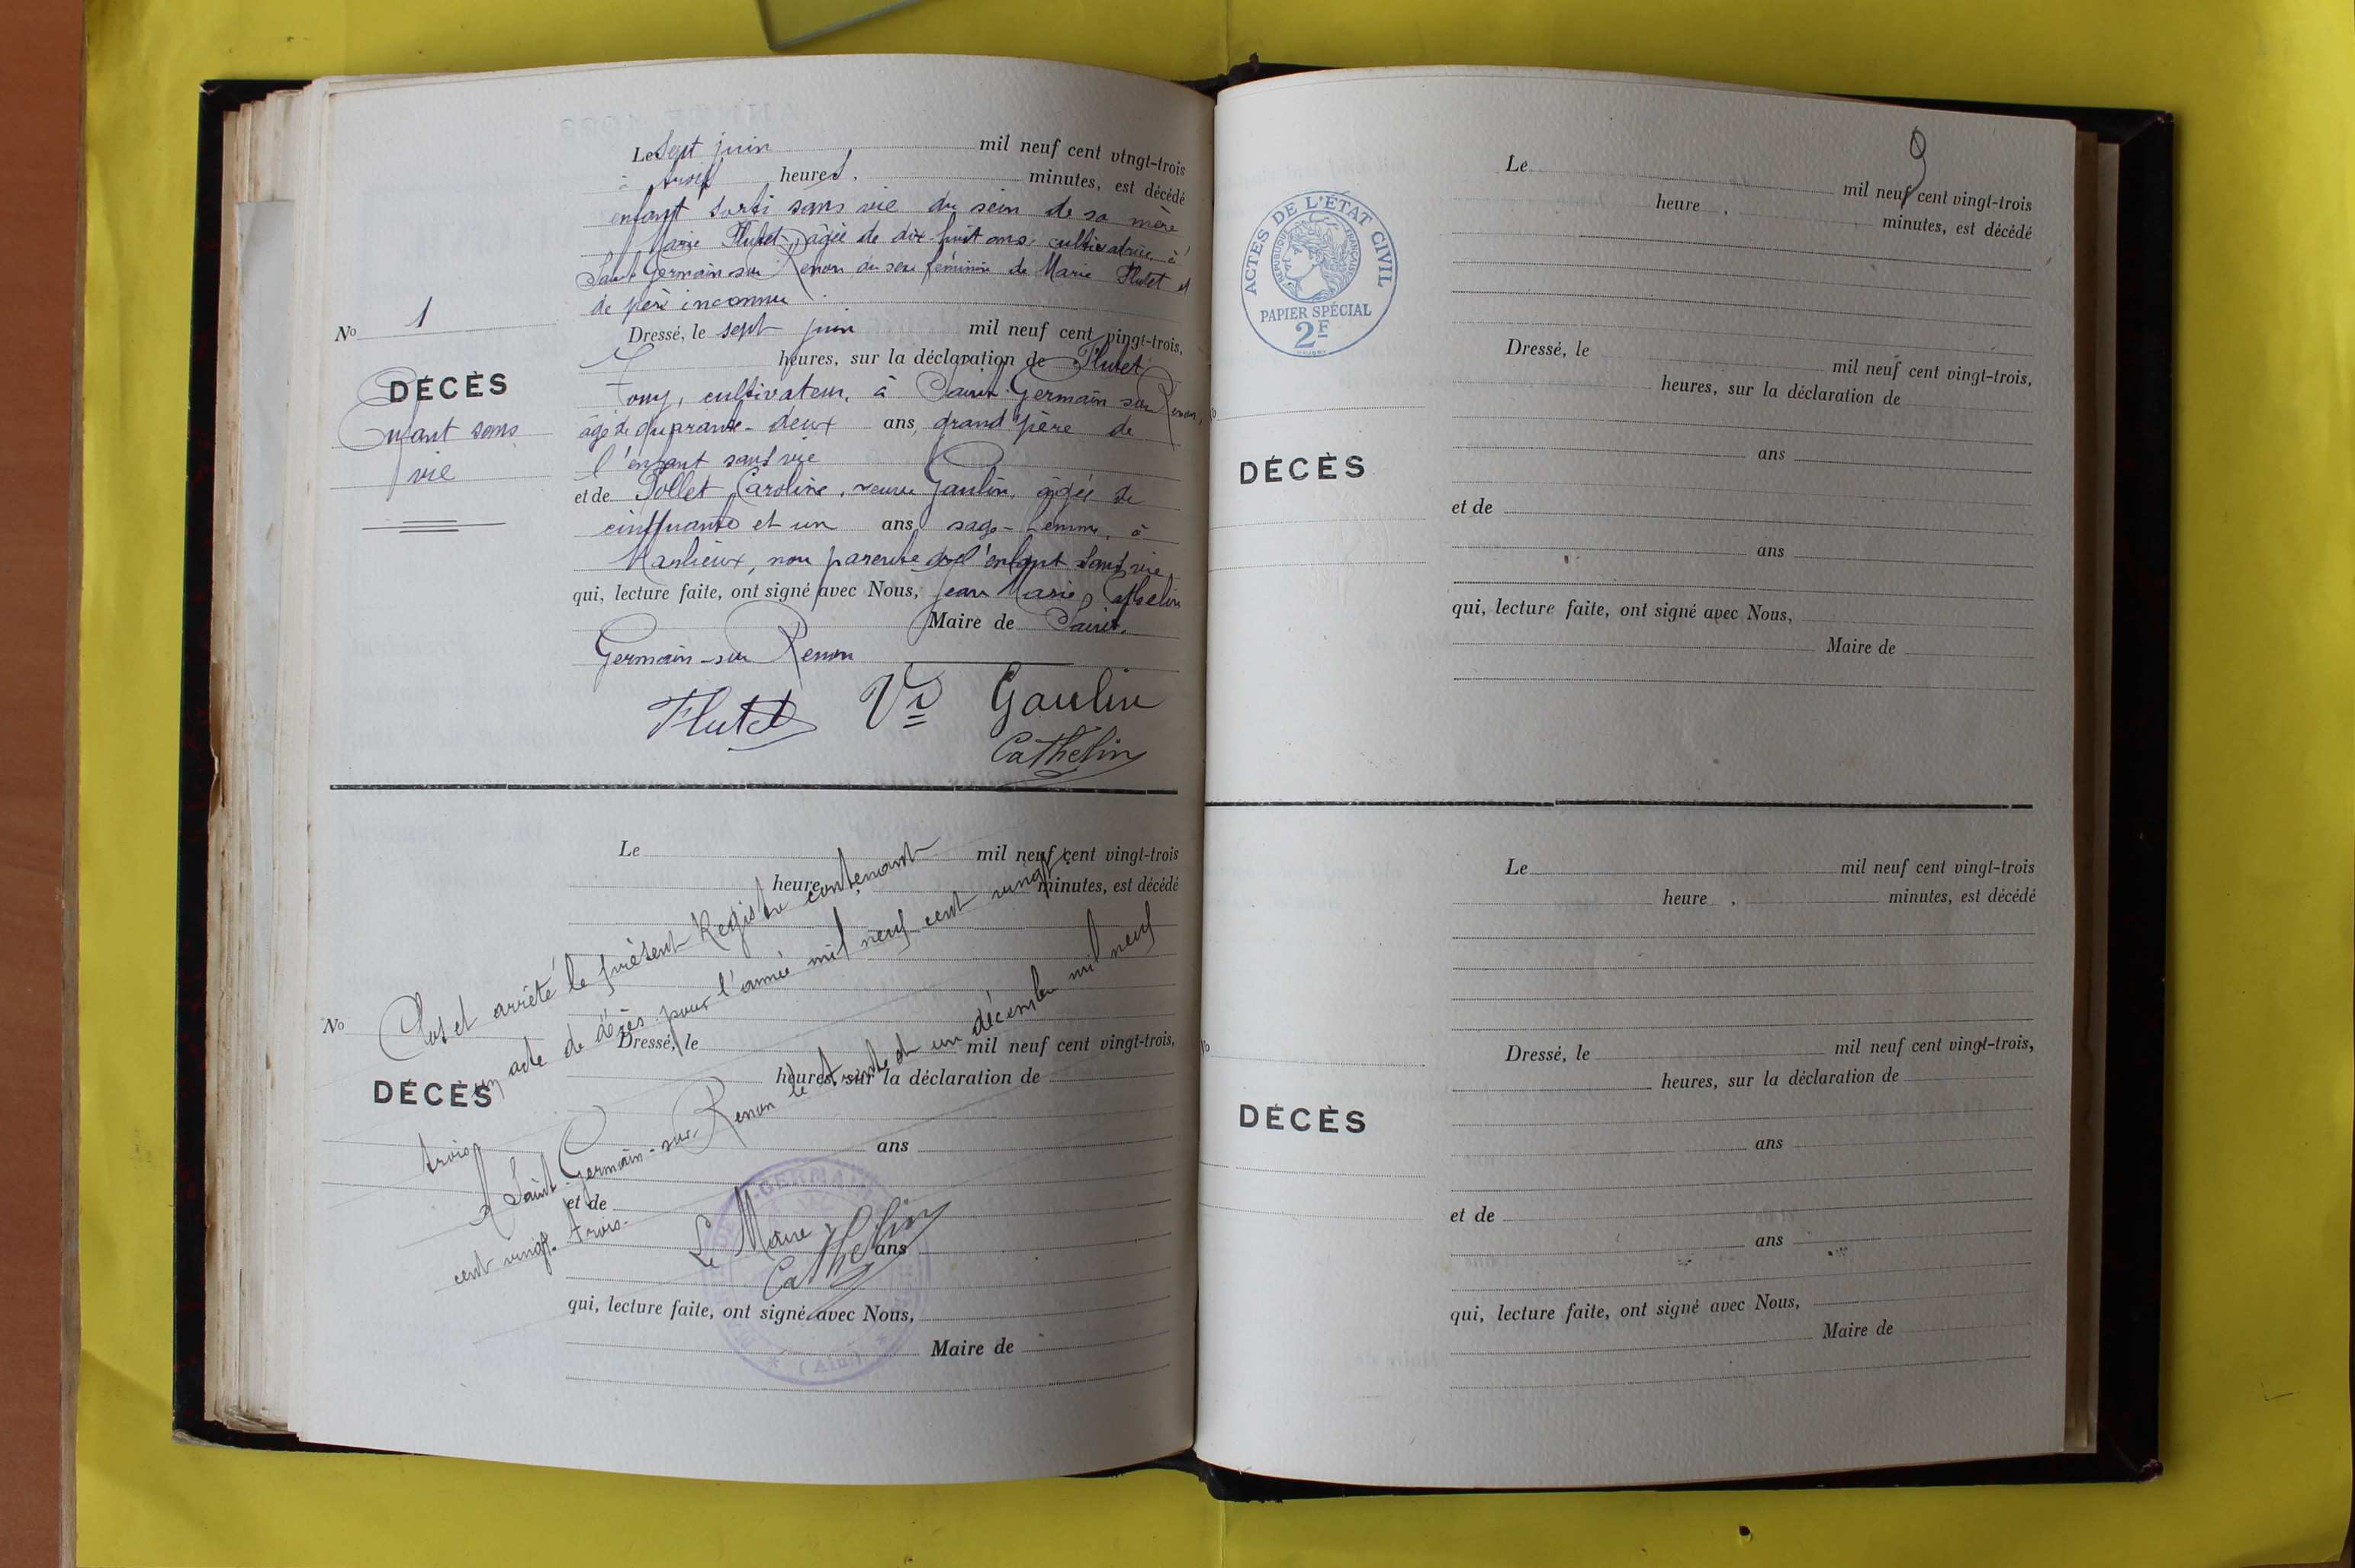 Le Sept juin mil neuf cent vingt-trois
à trois heures. minutes, est décédé
enfant sorti sans vie du sein de sa mère
Marie Flutet, âgée de dix huit ans, cultivatrice à
Saint Germain sur Renon du sexe féminin de Marie Flutet et
de père inconnu
No 1
DÉCÈS
Enfant sans
vie
Dressé, le sept juin mil neuf cent vingt-trois,
heures, sur la déclaration de Flutet
Tony, cultivateur, à Saint Germain sur Renon,
âgé de quarante-deux ans, grand père de
l'enfant sans vie
et de Pollet Caroline, veuve Gaulin, âgée de
cinquante et un ans, sage-femme, à
Marlieux, non parente de l'enfant sans vie,
qui, lecture faite, ont signé avec Nous, Jean Marie Cathelin
Maire de Saint-
Germain-sur Renon
Flutet Vve Gaulin
Cathelin
Le mil neuf cent vingt-trois
heure minutes, est décédé
No
DÉCÈS
Dressé, le mil neuf cent vingt-trois,
heures, sur la déclaration de
ans
et de
ans
qui, lecture faite, ont signé avec Nous,
Maire de
Clos et arrêté le présent Registre contenant
un acte de décès pour l'année mil neuf cent vingt
trois
A Saint-Germain-sur Renon le trente et un décembre mil neuf
cent vingt-trois.
Le Maire,
Cathelin
GERMAIN
(Ain)
9
ACTES DE L'ÉTAT CIVIL
RÉPUBLIQUE FRANÇAISE
PAPIER SPÉCIAL
2F
Le mil neuf cent vingt-trois
heure , minutes, est décédé
DÉCÈS
Dressé, le mil neuf cent vingt-trois,
heures, sur la déclaration de
ans
et de
ans
qui, lecture faite, ont signé avec Nous,
Maire de
Le mil neuf cent vingt-trois
heure , minutes, est décédé
DÉCÈS
Dressé, le mil neuf cent vingt-trois,
heures, sur la déclaration de
ans
et de
ans
qui, lecture faite, ont signé avec Nous,
Maire de